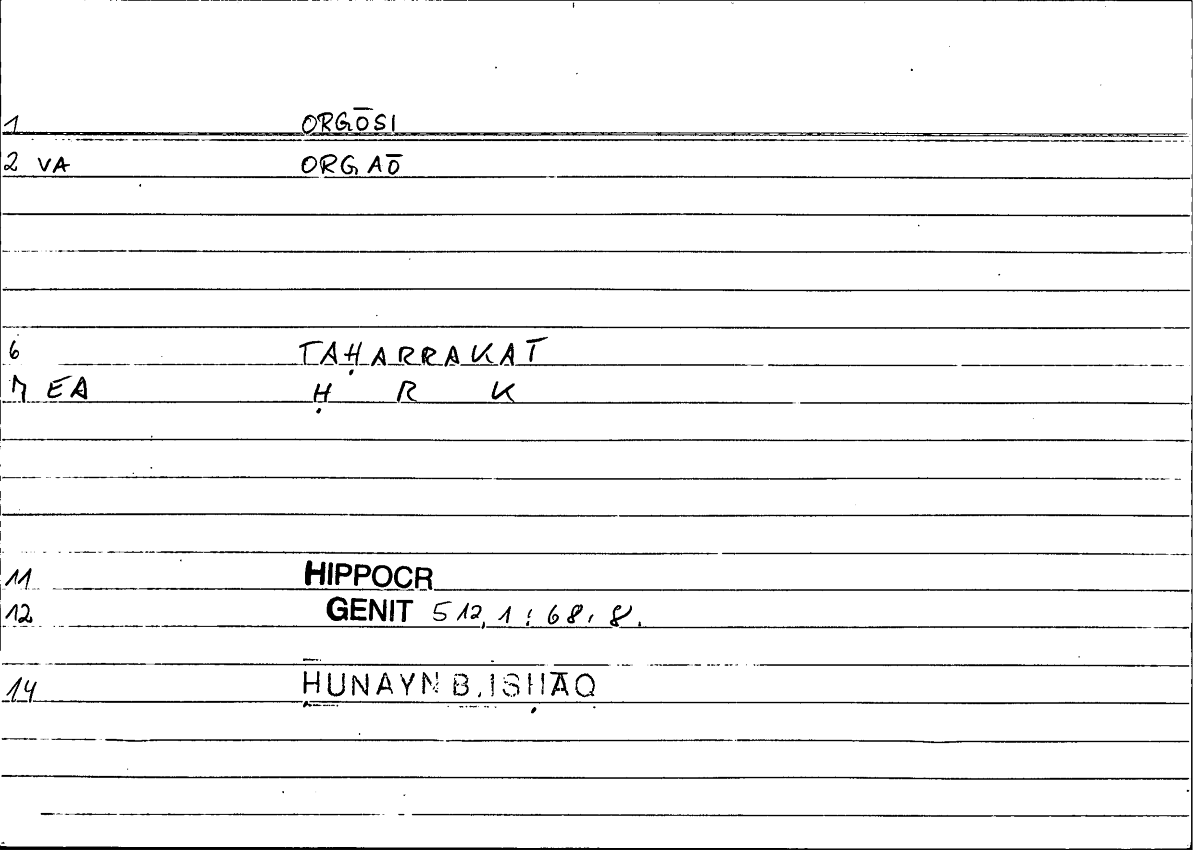 1 ORGŌSI
2 VA ORGAŌ
6 TAḤARRAKAT
7 EA Ḥ R K
11 HIPPOCR
12 GENIT 512,1 : 68,8.
14 ḤUNAYN B. ISḤĀQ